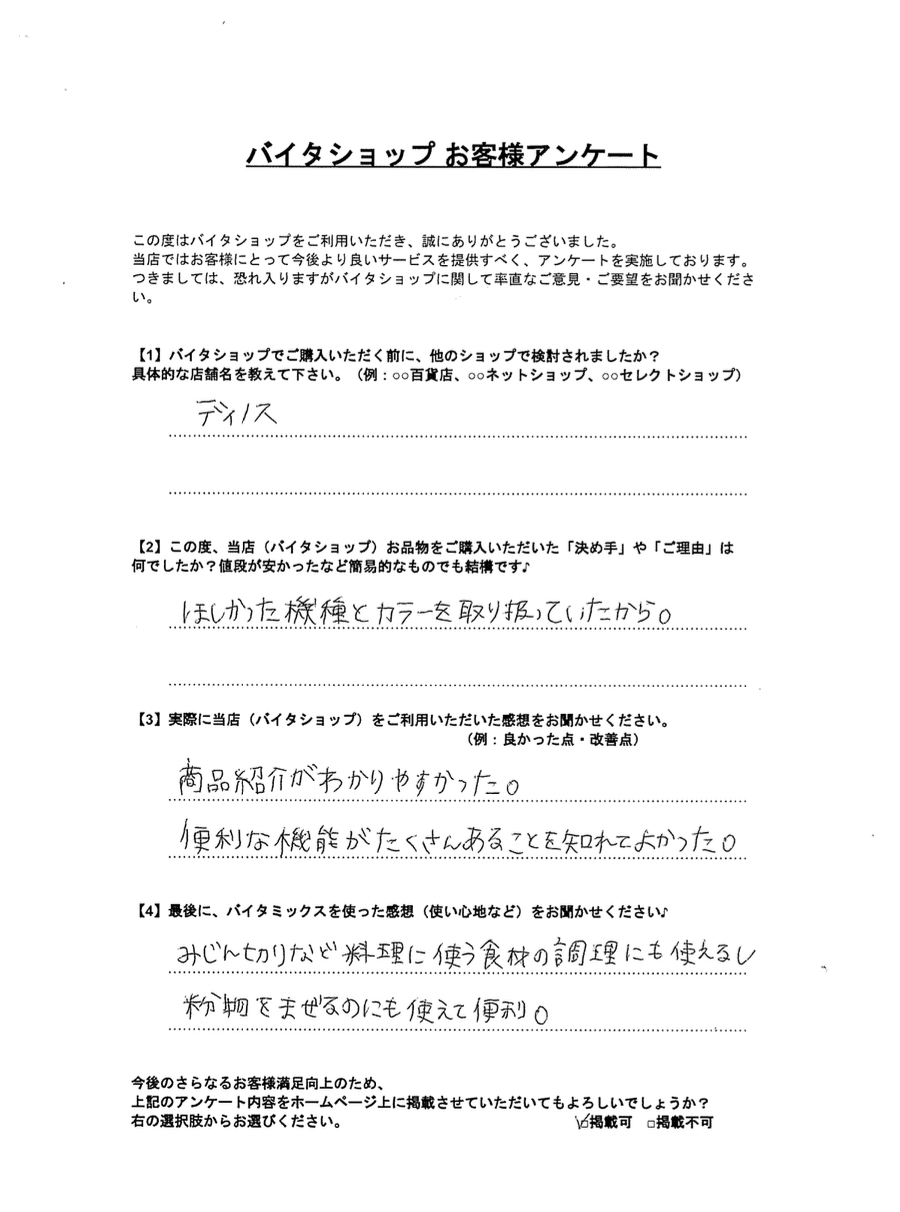 バイタショップ お客様アンケート
この度はバイタショップをご利用いただき、誠にありがとうございました。
当店ではお客様にとって今後より良いサービスを提供すべく、アンケートを実施しております。
つきましては、恐れ入りますがバイタショップに関して率直なご意見・ご要望をお聞かせくださ
い。
【1】バイタショップでご購入いただく前に、他のショップで検討されましたか？
具体的な店舗名を教えて下さい。（例：○○百貨店、○○ネットショップ、○○セレクトショップ）
ディノス
【2】この度、当店（バイタショップ）お品物をご購入いただいた「決め手」や「ご理由」は
何でしたか？値段が安かったなど簡易的なものでも結構です♪
ほしかった機種とカラーを取り扱っていたから。
【3】実際に当店（バイタショップ）をご利用いただいた感想をお聞かせください。
（例：良かった点・改善点）
商品紹介がわかりやすかった。
便利な機能がたくさんあることを知れてよかった。
【4】最後に、バイタミックスを使った感想（使い心地など）をお聞かせください♪
みじん切りなど料理に使う食材の調理にも使えるし
粉物をまぜるのにも使えて便利。
今後のさらなるお客様満足向上のため、
上記のアンケート内容をホームページ上に掲載させていただいてもよろしいでしょうか？
右の選択肢からお選びください。 ☑掲載可 □掲載不可